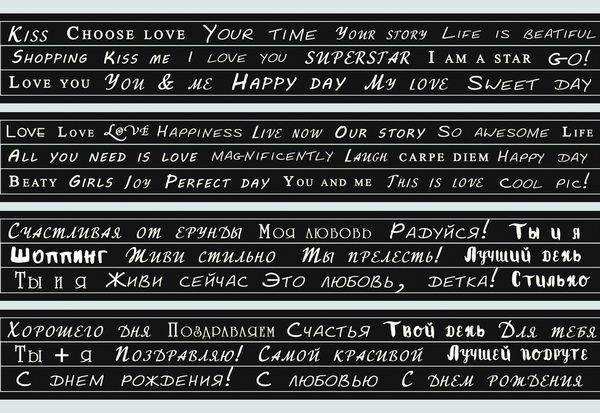 Kiss Choose love Your time Your story Life is beatiful
Shopping Kiss me I love you superstar I am a star Go!
Love you You & me Happy day My love Sweet day
Love Love Love Happiness Live now Our story So awesome Life
All you need is love magnificently Laugh carpe diem Happy day
Beaty Girls Joy Perfect day You and me This is love cool pic!
Счастливая от ерунды Моя любовь Радуйся! Ты и я
Шоппинг Живи стильно Ты прелесть! Лучший день
Ты и я Живи сейчас Это любовь, детка! Стильно
Хорошего дня Поздравляем Счастья Твой день Для тебя
Ты + я Поздравляю! Самой красивой Лучшей подруге
С днем рождения! С любовью С днем рождения